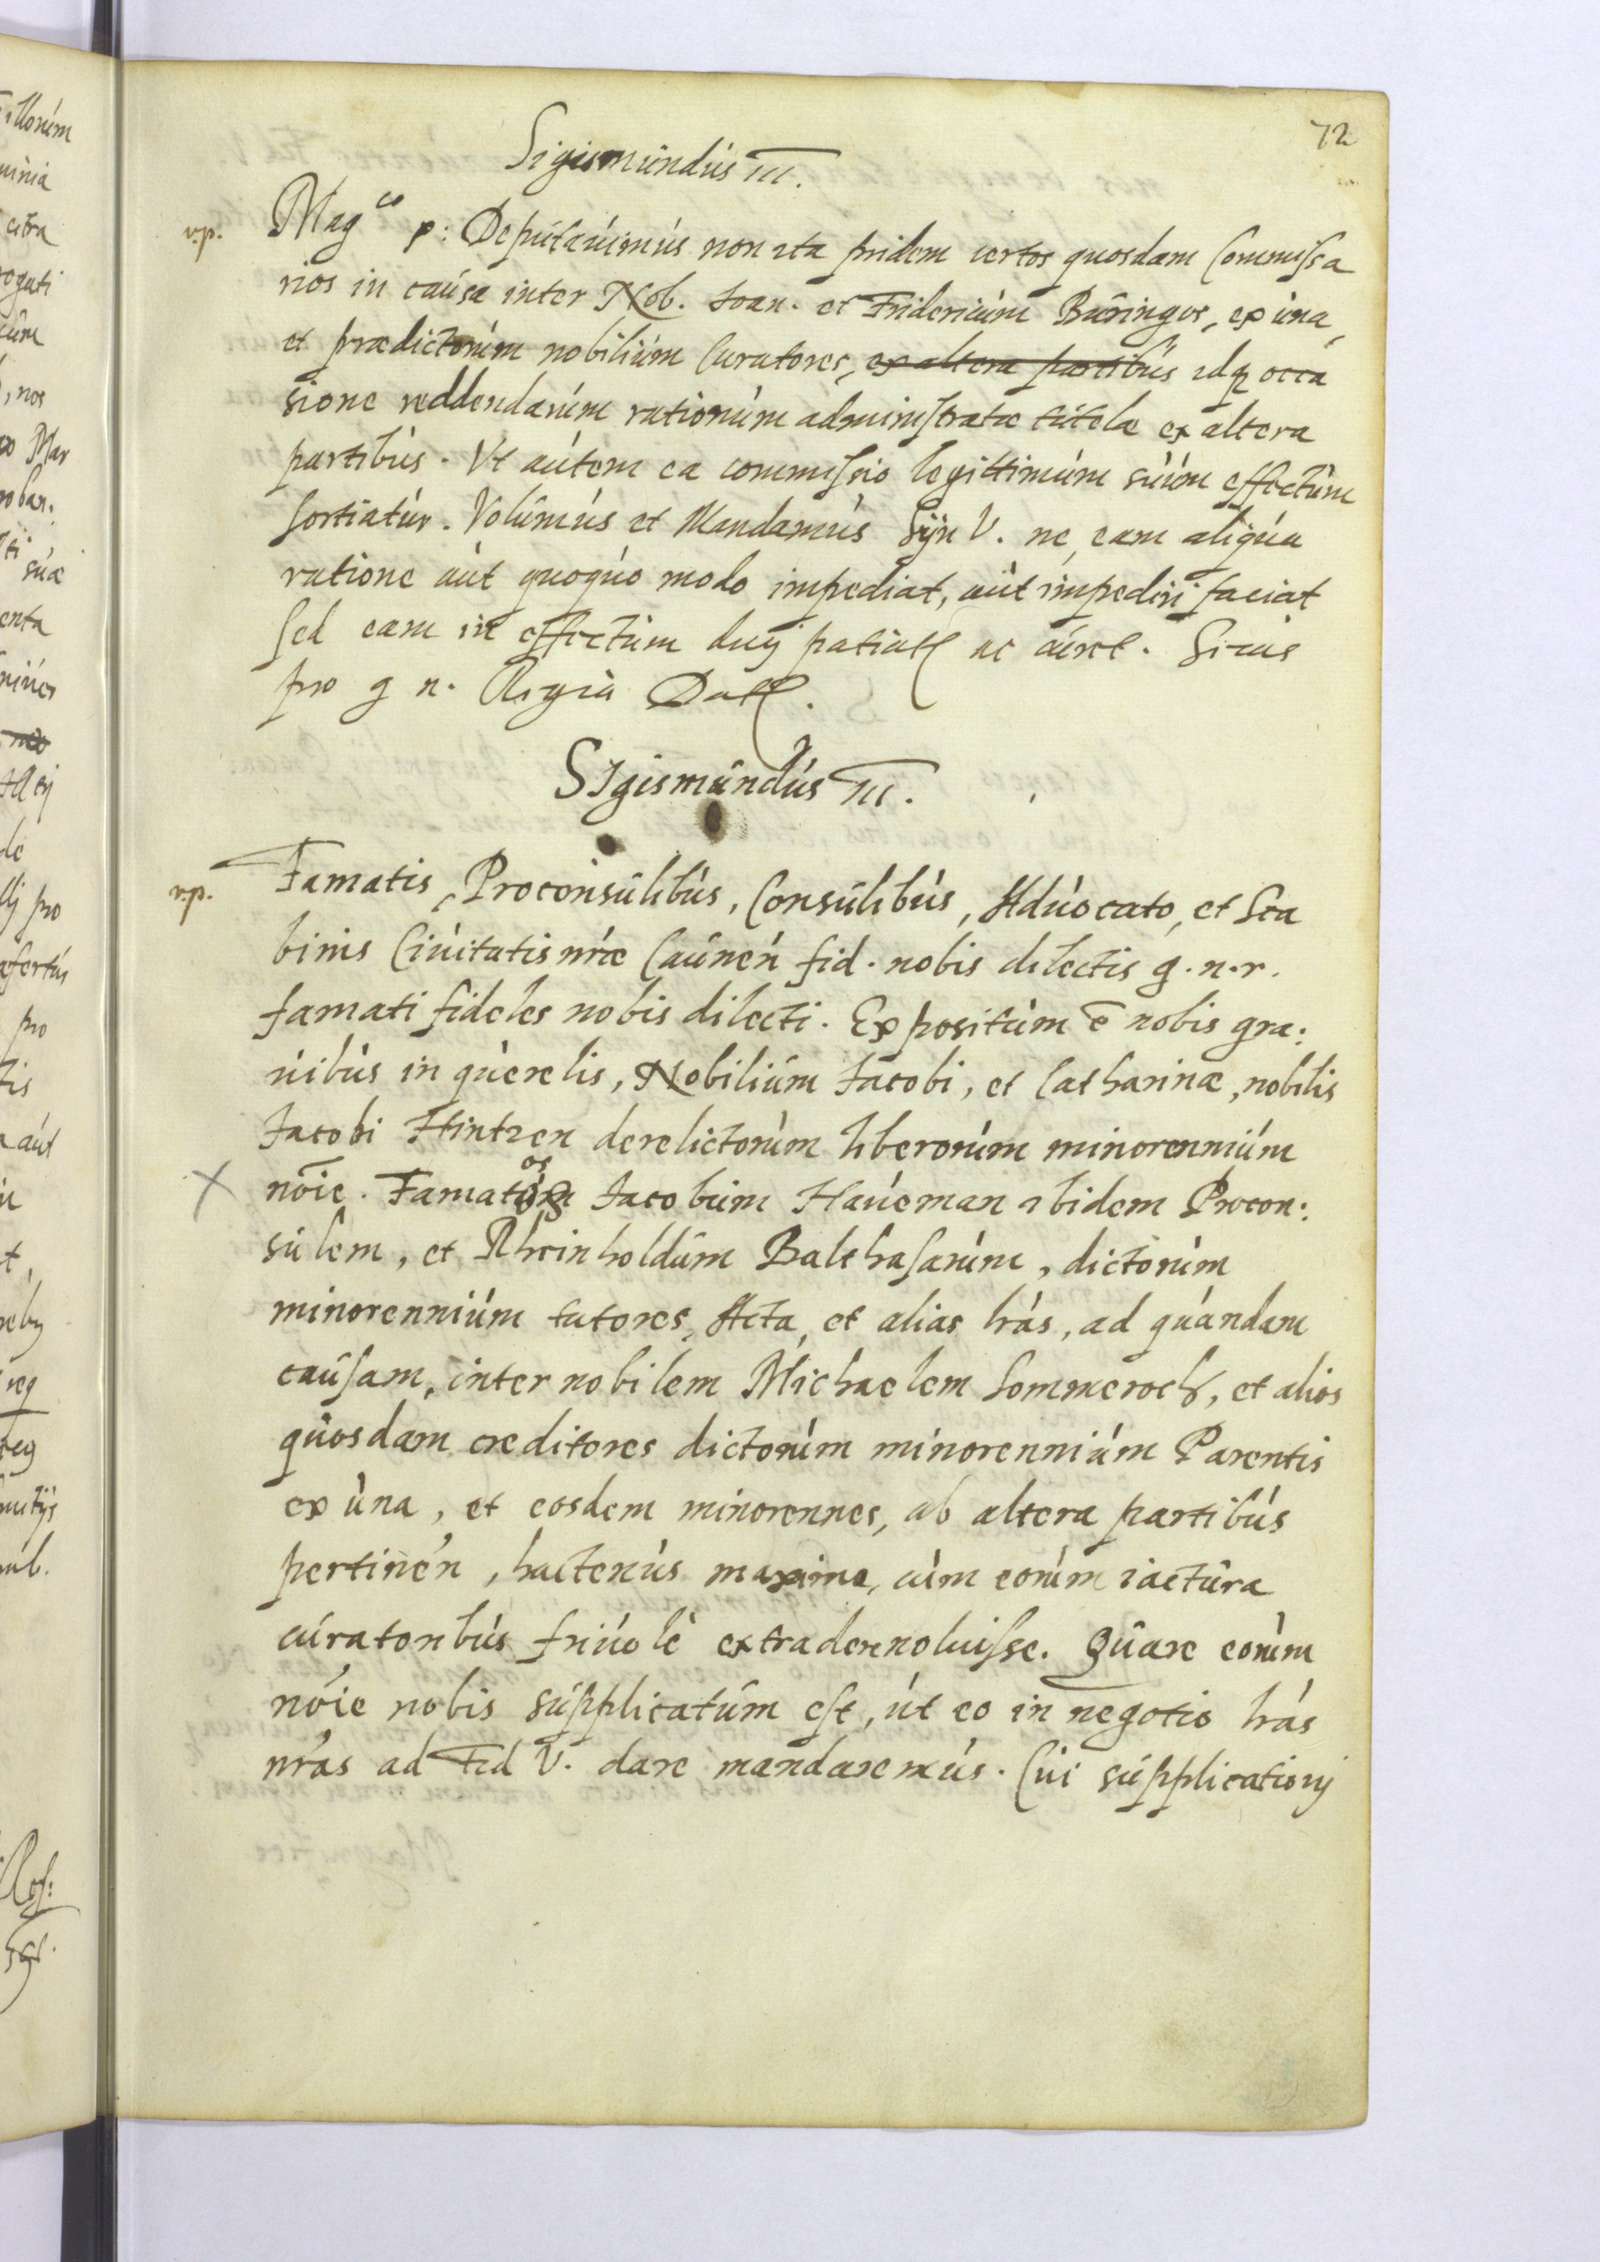 72
Sigismundus III.
v.p. Mag co p: Deputauimus non ita pridem certos quosdam Commissa
rios in causa inter Nob. Ioan. et Fridericum Buringos, ex una,
et prædictorum nobilium Curatores, ex altera partibus idq occa
sione reddendarum rationum administratæ tutelæ ex altera
partibus. Vt autem ea commissio legittimum suum effectum
sortiatur. Volumus et Mandamus Syn V. ne, eam aliqua
ratione aut quoquo modo impediat, aut impediri faciat
sed eam in effectum duci patiatur ac
pro g n. Datt.
Sigismundus III.
v.p. Famatis, Proconsulibus, Consulibus, Aduocato, et Sca
binis Ciuitatis nræ Caunen fid. nobis dilectis g. n. r.
famati fideles nobis dilecti. Expositum e nobis gra:
uibus in querelis, Nobilium Iacobi, et Catharinæ, nobilis
Iacobi Hintzen derelictorum liberorum minorennium
noie. Famatos Iacobum Haueman ibidem Procon:
sulem, et Rheinholdum Balthasarum, dictorum
minorennium tutores, Acta, et alias lras, ad quandam
causam, inter nobilem Michaelem Sommeroch, et alios
quosdam creditores dictorum minorennium Parentis
ex una, et eosdem minorennes, ab altera partibus
pertinen, hactenus maxima, cum eorum iactura
curatoribus friuole extradere noluisse. Quare eorum
noie nobis supplicatum est, ut eo in negotio lras
nras ad Fid V. dare mandaremus. Cui supplicationj